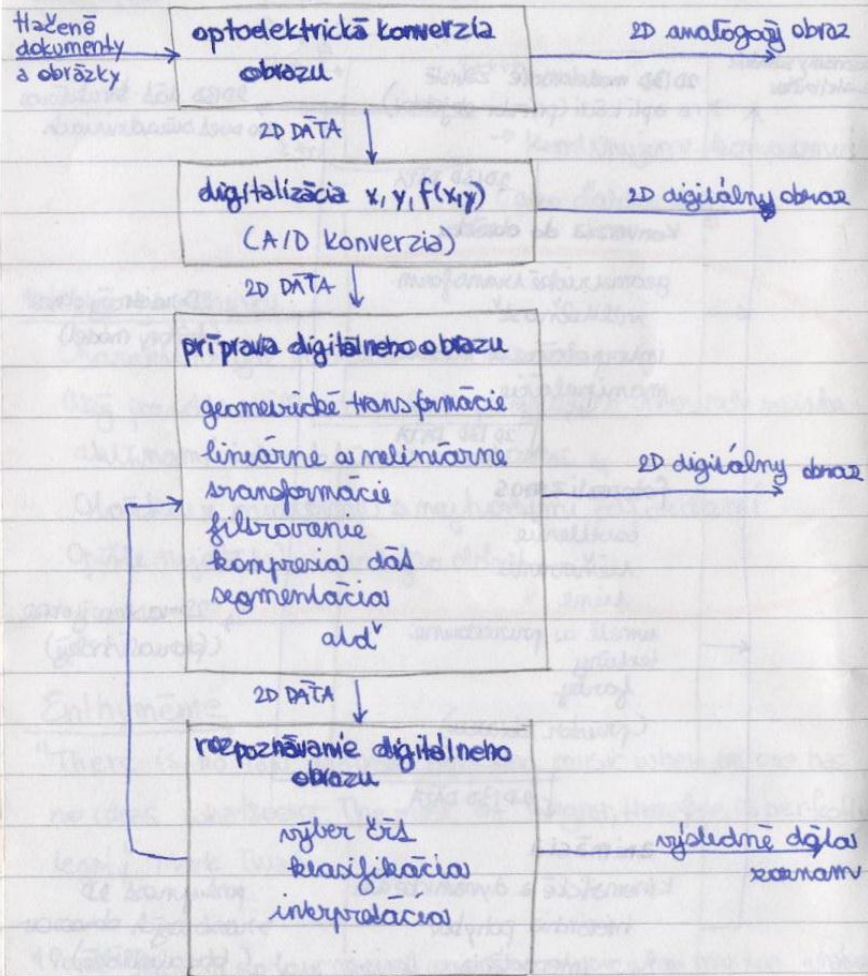 tlačené
dokumenty
a obrázky
optoelektrická konverzia
obrazu
2D analógový obraz
2D DÁTA
digitalizácia x, y, f(x,y)
(A/D konverzia)
2D digitálny obraz
2D DÁTA
príprava digitálneho obrazu
geometrické transformácie
lineárne a nelineárne
transformácie
filtrovanie
kompresia dát
segmentácia
atď
2D digitálny obraz
2D DÁTA
rozpoznávanie digitálneho
obrazu
výber čŕt
klasifikácia
interpretácia
výsledné dáta
zoznam
Enthymeme
"There is no